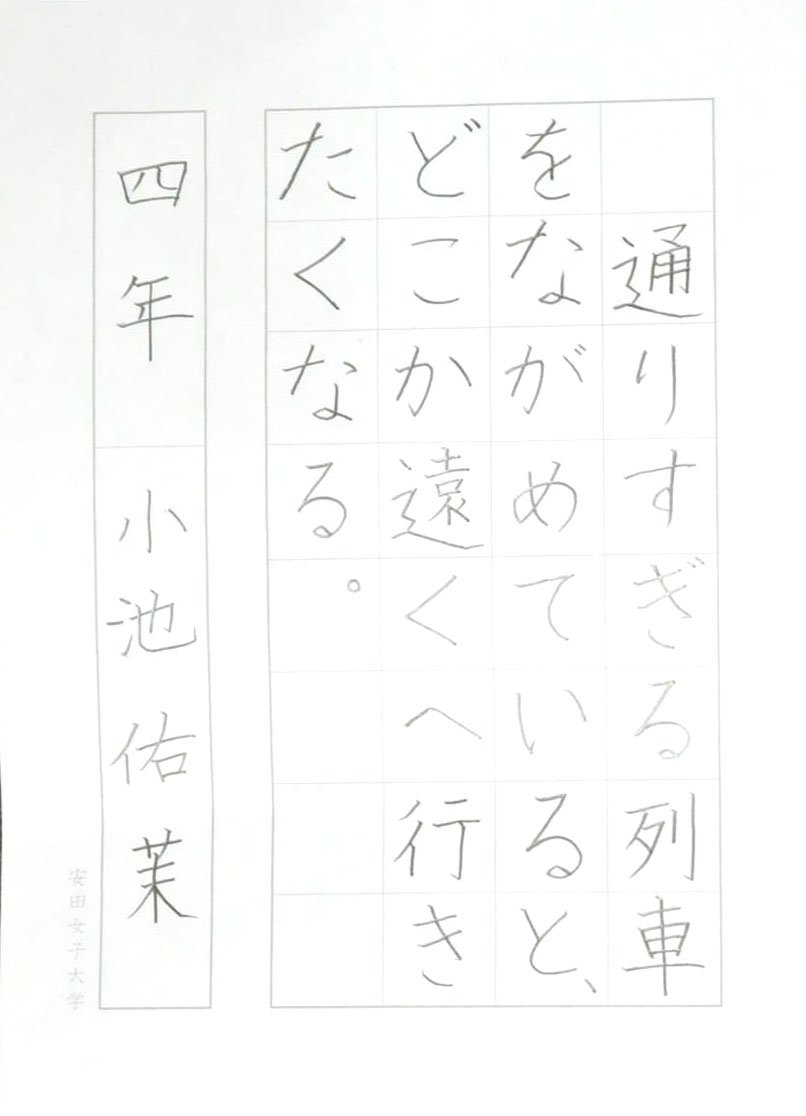 通りすぎる列車
をながめていると、
どこか遠くへ行き
たくなる。
四年 小池佑茉
安田女子大学